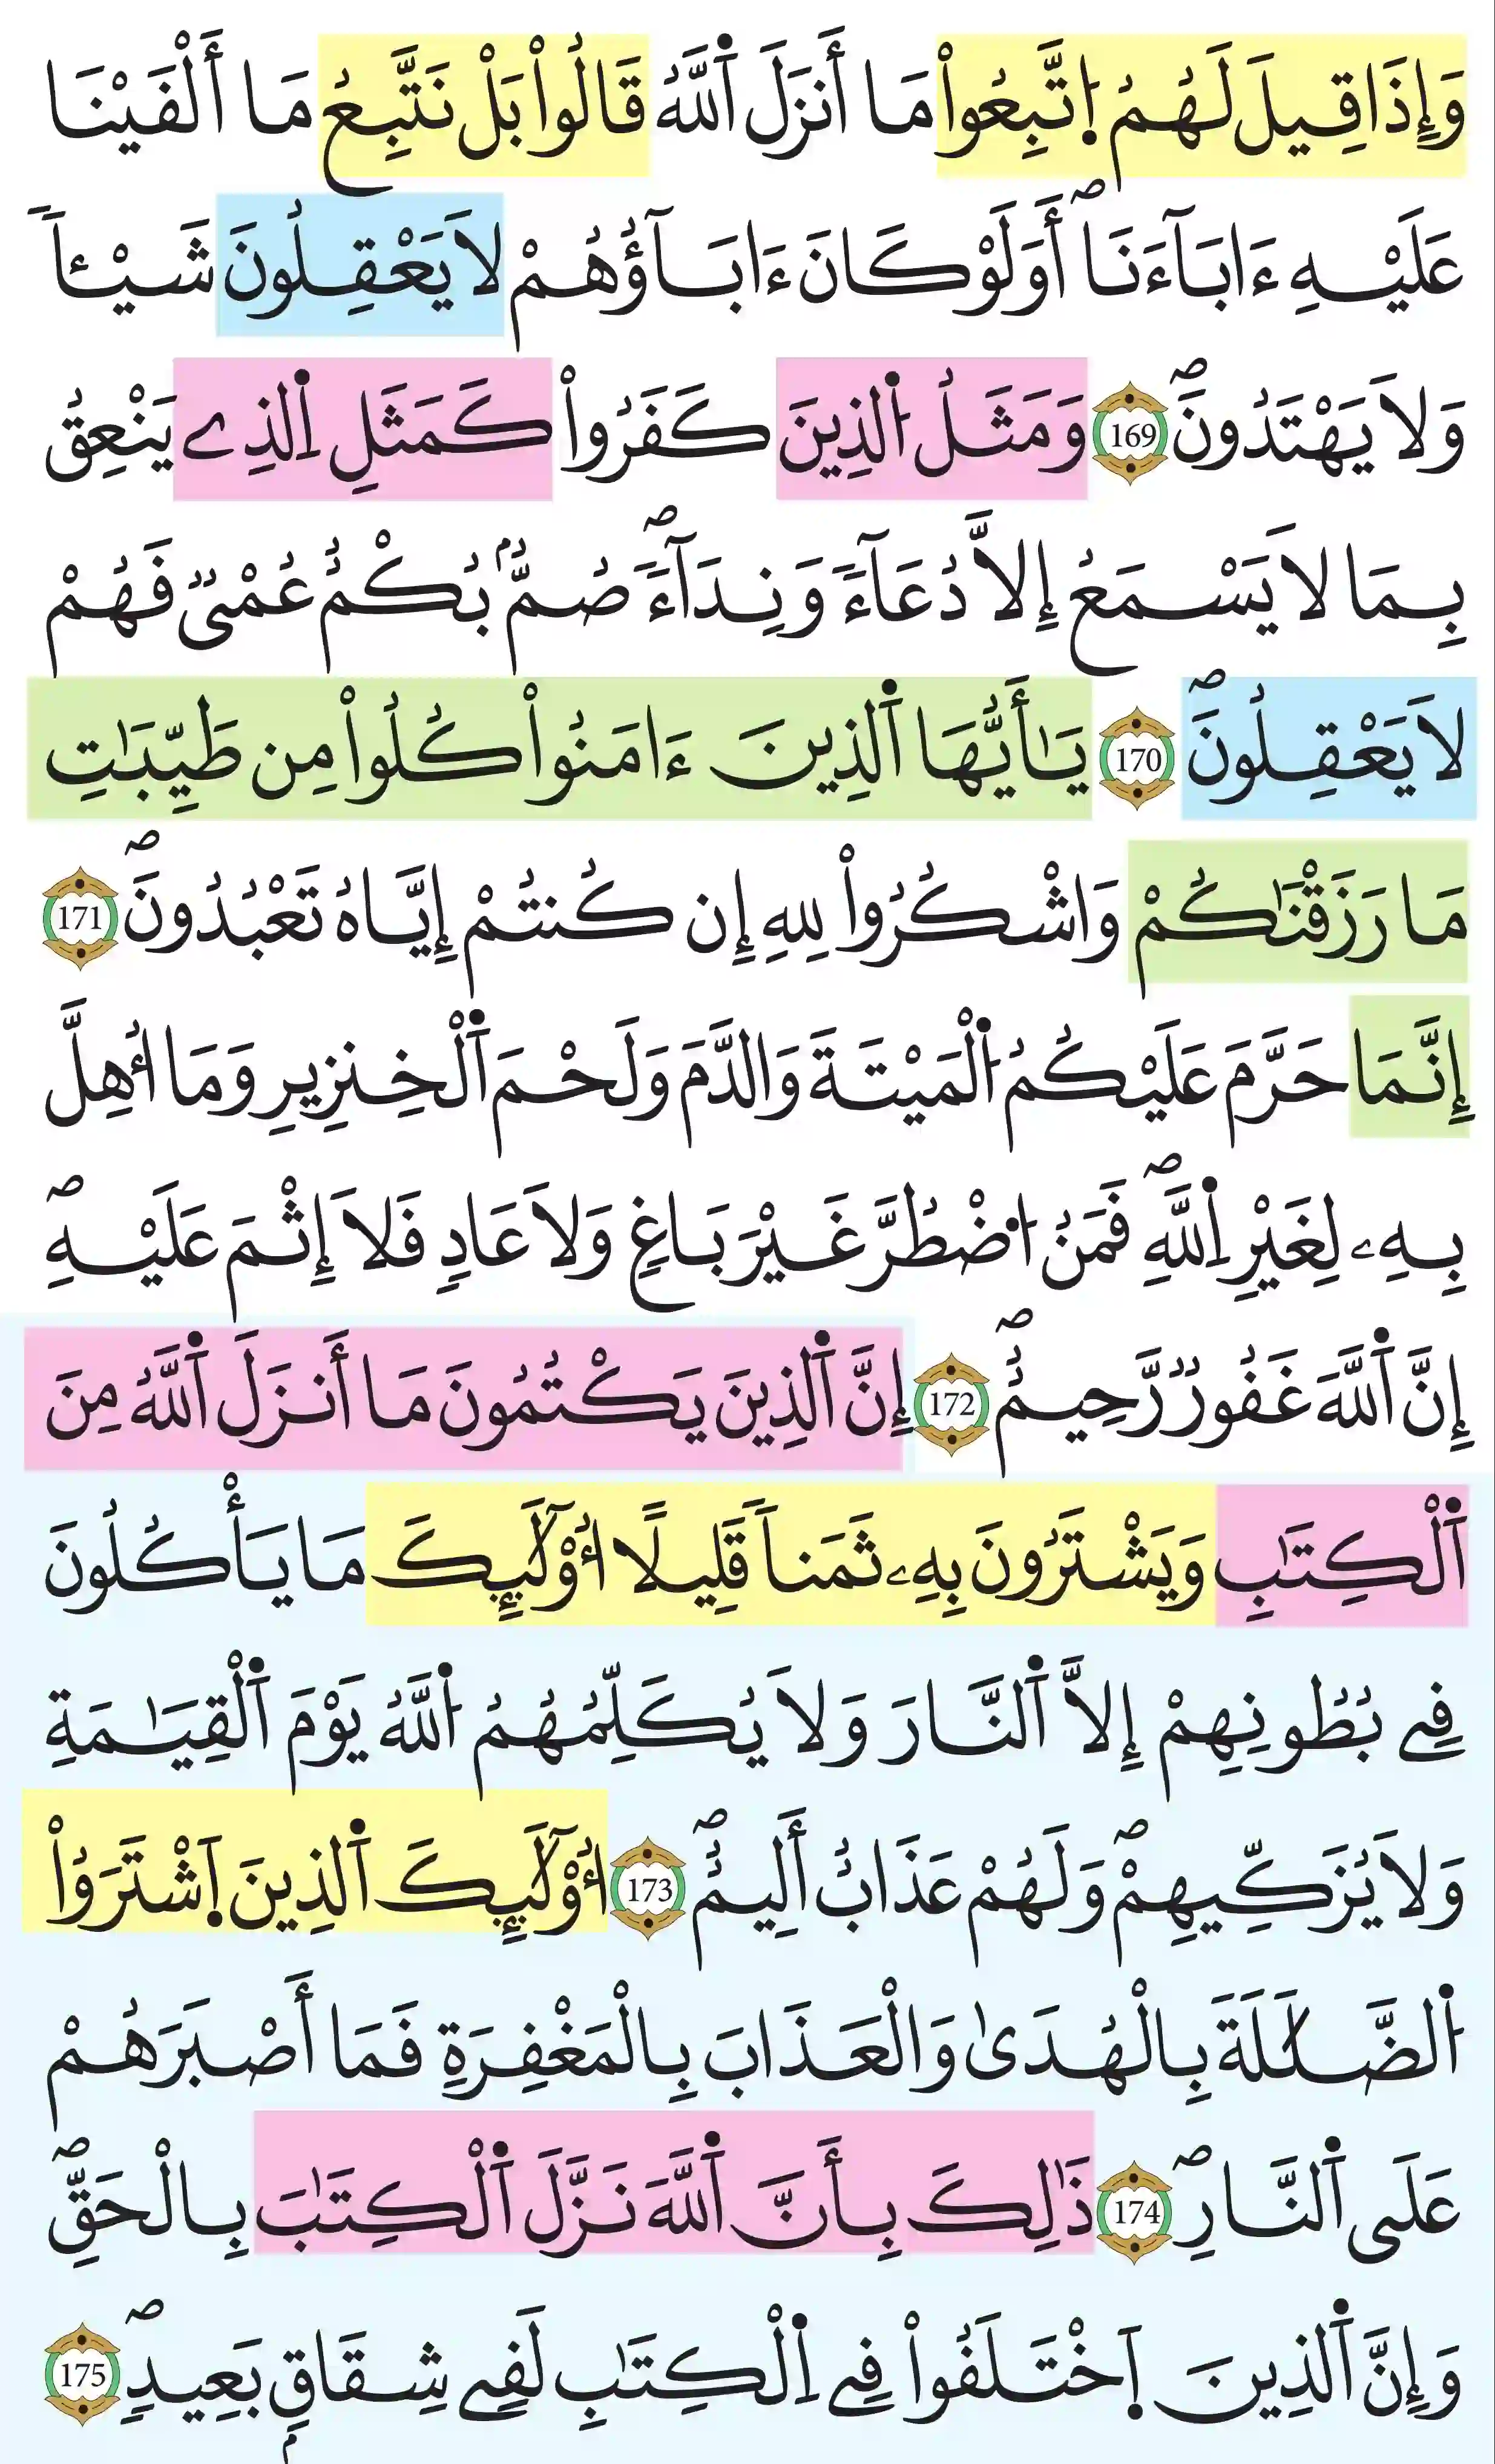 وَإِذَا قِيلَ لَهُمُ اُتَّبِعُواْ مَا أَنزَلَ اَللَّهُ قَالُواْ بَلْ نَتَّبِعُ مَا أَلْفَيْنَا
عَلَيْهِ ءَابَآءَنَاۖ أَوَلَوْ كَانَ ءَابَآؤُهُمْ لَا يَعْقِلُونَ شَيْـٔاً
وَلَا يَهْتَدُونَۖ 169 وَمَثَلُ اُلذِينَ كَفَرُواْ كَمَثَلِ اِلذِے يَنْعِقُ
بِمَا لَا يَسْمَعُ إِلَّا دُعَآءً وَنِدَآءًۖ صُمُّۢ بُكْمٌ عُمْيٌ فَهُمْ
لَا يَعْقِلُونَۖ 170 يَـٰأَيُّهَا اَلذِينَ ءَامَنُواْ كُلُواْ مِن طَيِّبَـٰتِ
مَا رَزَقْنَـٰكُمْ وَاشْكُرُواْ لِلهِ إِن كُنتُمْ إِيَّاهُ تَعْبُدُونَۖ 171
إِنَّمَا حَرَّمَ عَلَيْكُمُ اُلْمَيْتَةَ وَالدَّمَ وَلَحْمَ اَلْخِنزِيرِ وَمَا أُهِلَّ
بِهِۦ لِغَيْرِ اِللَّهِۖ فَمَنُ اُضْطُرَّ غَيْرَ بَاغٍ وَلَا عَادٍ فَلَا إِثْمَ عَلَيْهِۖ
إِنَّ اَللَّهَ غَفُورٌ رَّحِيمٌۖ 172 إِنَّ اَلذِينَ يَكْتُمُونَ مَا أَنزَلَ اَللَّهُ مِنَ
اَلْكِتَـٰبِ وَيَشْتَرُونَ بِهِۦ ثَمَناً قَلِيلًا أُوْلَـٰٓئِكَ مَا يَأْكُلُونَ
فِے بُطُونِهِمْ إِلَّا اَلنَّارَ وَلَا يُكَلِّمُهُمُ اُللَّهُ يَوْمَ اَلْقِيَـٰمَةِ
وَلَا يُزَكِّيهِمْۖ وَلَهُمْ عَذَابٌ أَلِيمٌۖ 173 أُوْلَـٰٓئِكَ اَلذِينَ اَشْتَرَوُاْ
اُلضَّلَـٰلَةَ بِالْهُدَىٰ وَالْعَذَابَ بِالْمَغْفِرَةِ فَمَا أَصْبَرَهُمْ
عَلَى اَلنَّارِۖ 174 ذَٰلِكَ بِأَنَّ اَللَّهَ نَزَّلَ اَلْكِتَـٰبَ بِالْحَقِّۖ
وَإِنَّ اَلذِينَ اَخْتَلَفُواْ فِے اِلْكِتَـٰبِ لَفِے شِقَاقٍۢ بَعِيدٍۖ 175